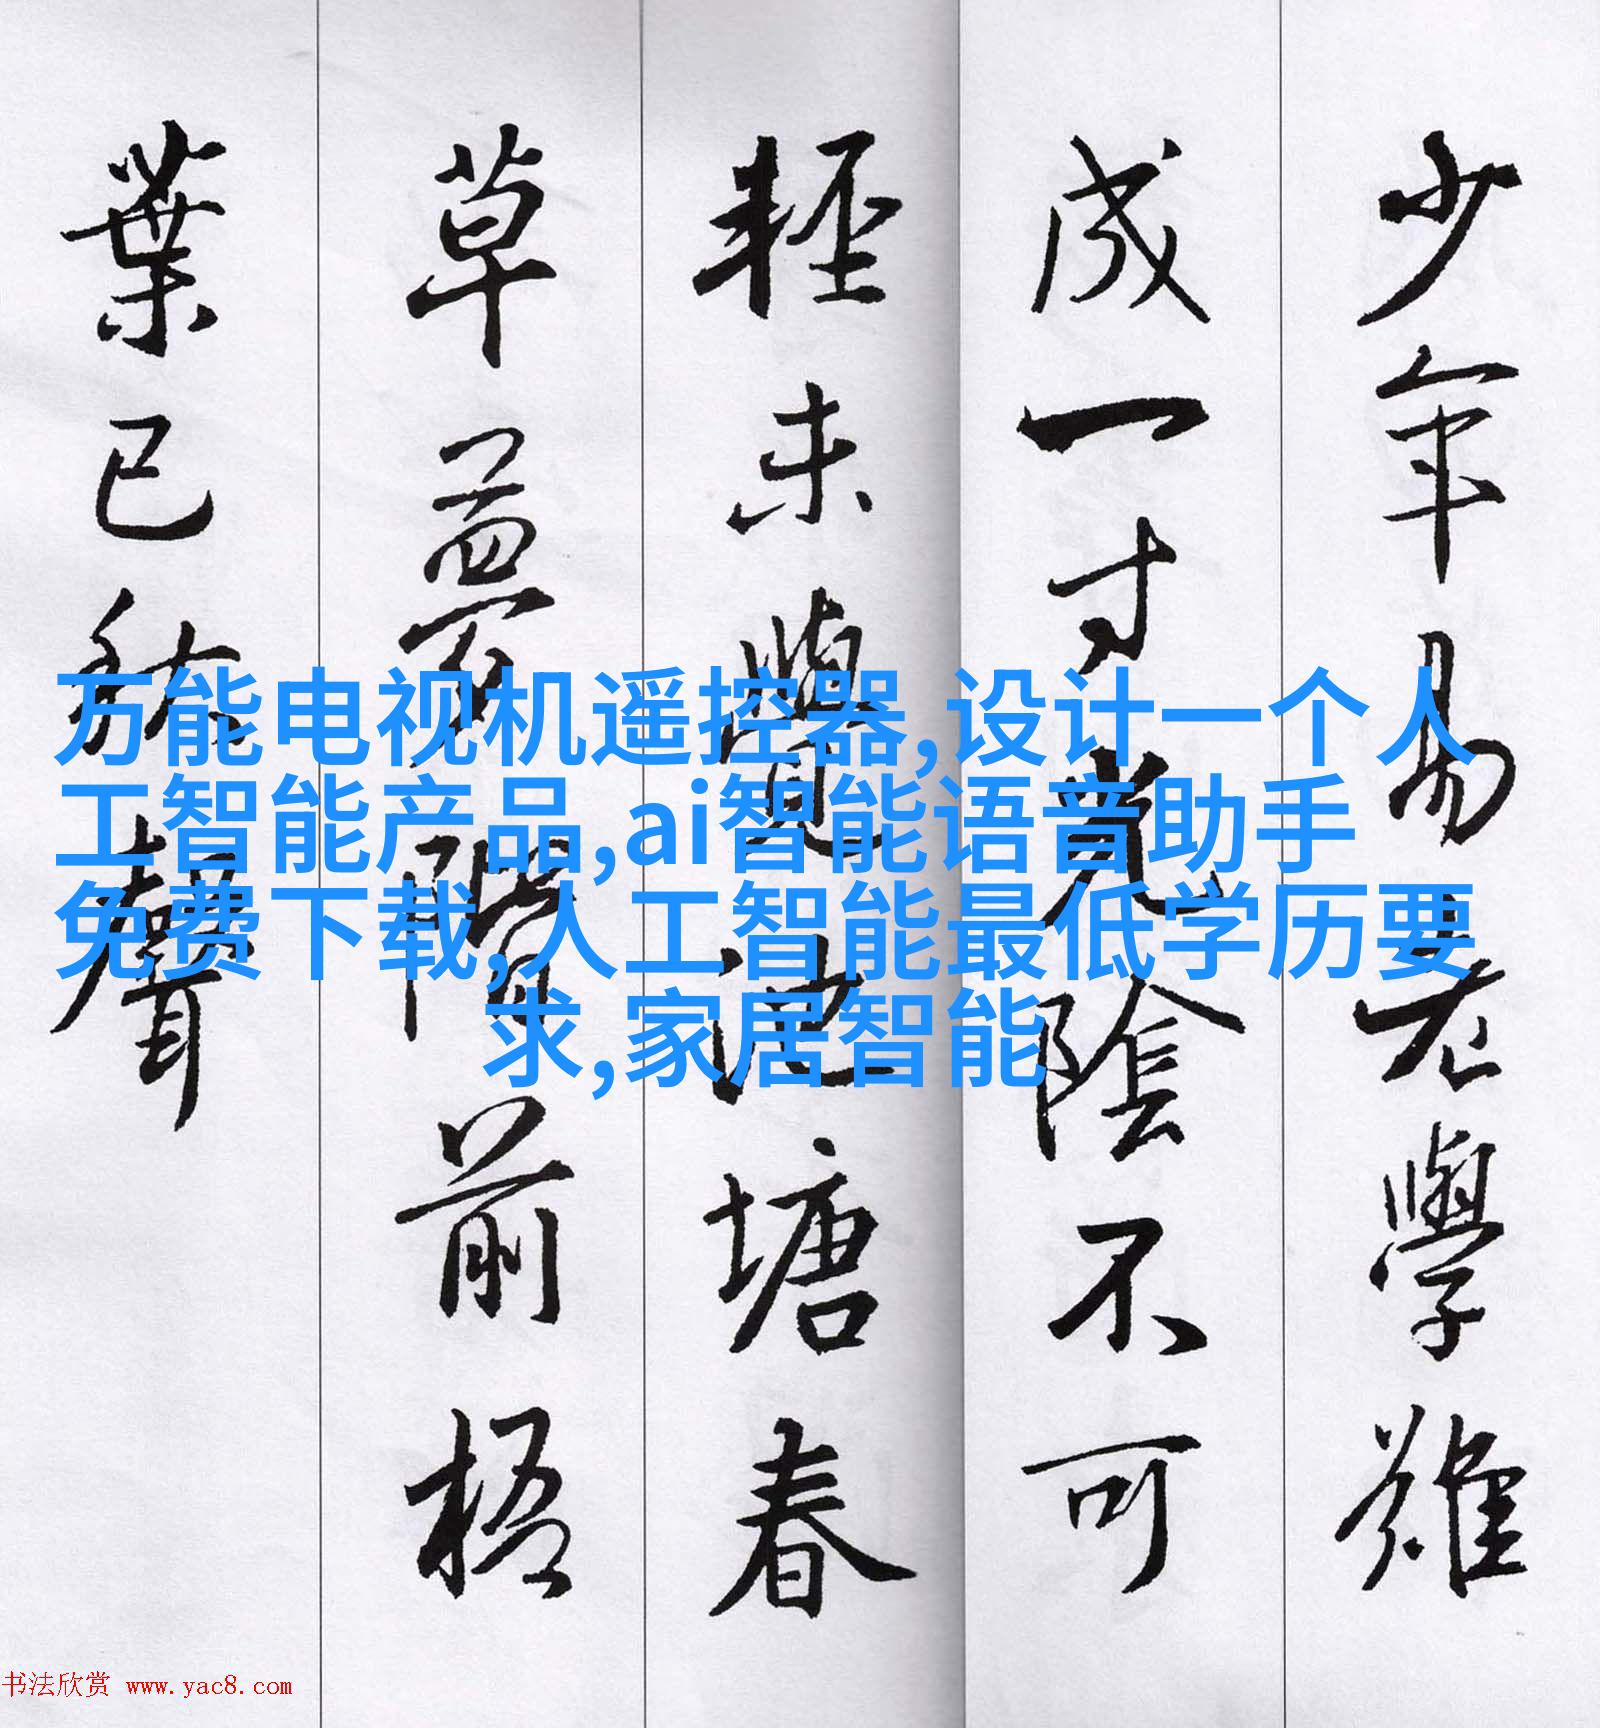 少年易老學難
成一寸光陰不可
輕未覺池塘春
草夢階前梧
葉已秋聲
万能电视机遥控器,设计一个人
工智能产品,ai智能语音助手
免费下载,人工智能最低学历要
求,家居智能
书法欣赏 www.yac8.com